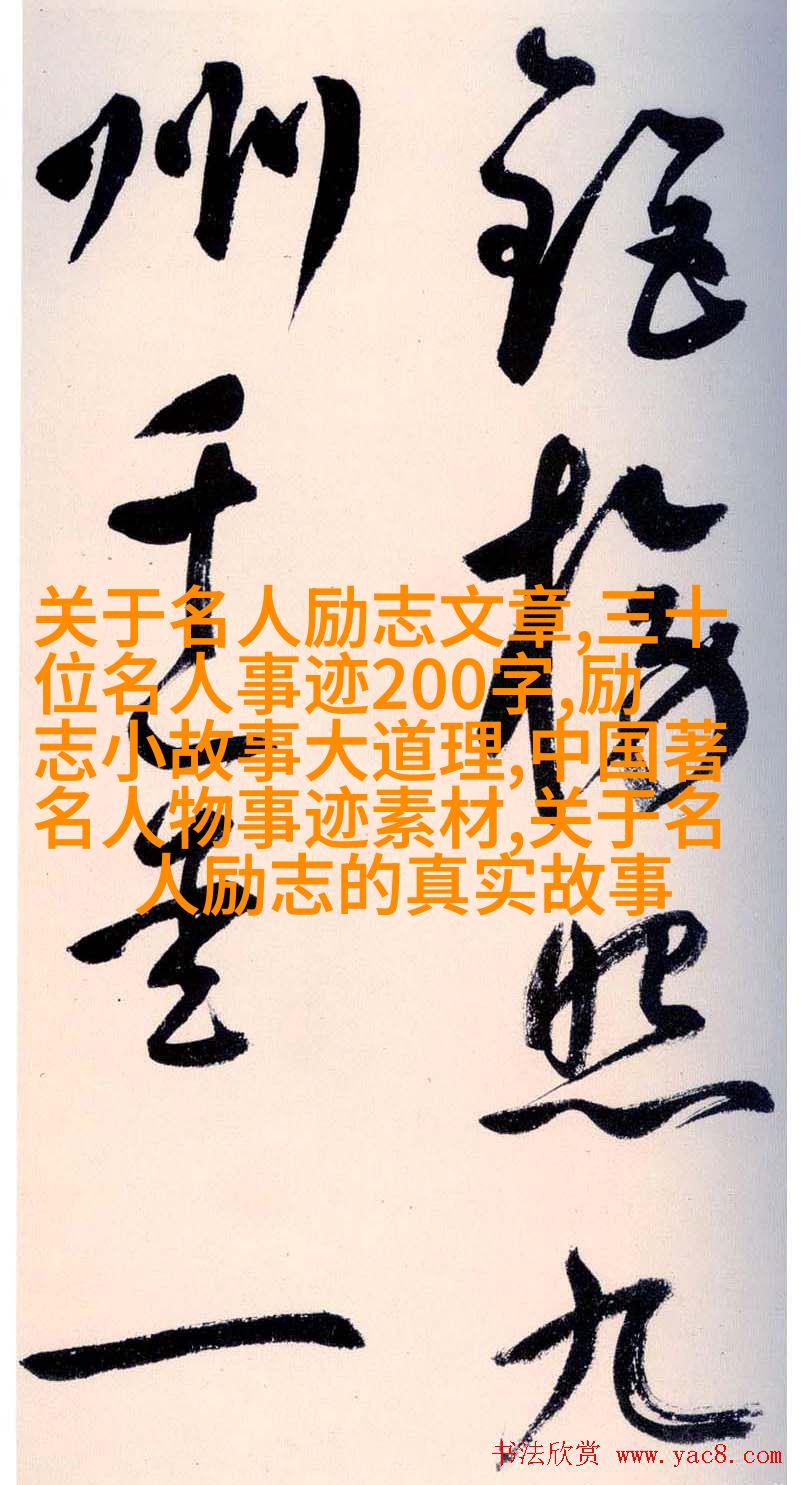 照九
州千一
关于名人励志文章,三十
位名人事迹200字,励
志小故事大道理,中国著
名人物事迹素材,关于名
人励志的真实故事
书法欣赏 www.yac8.com